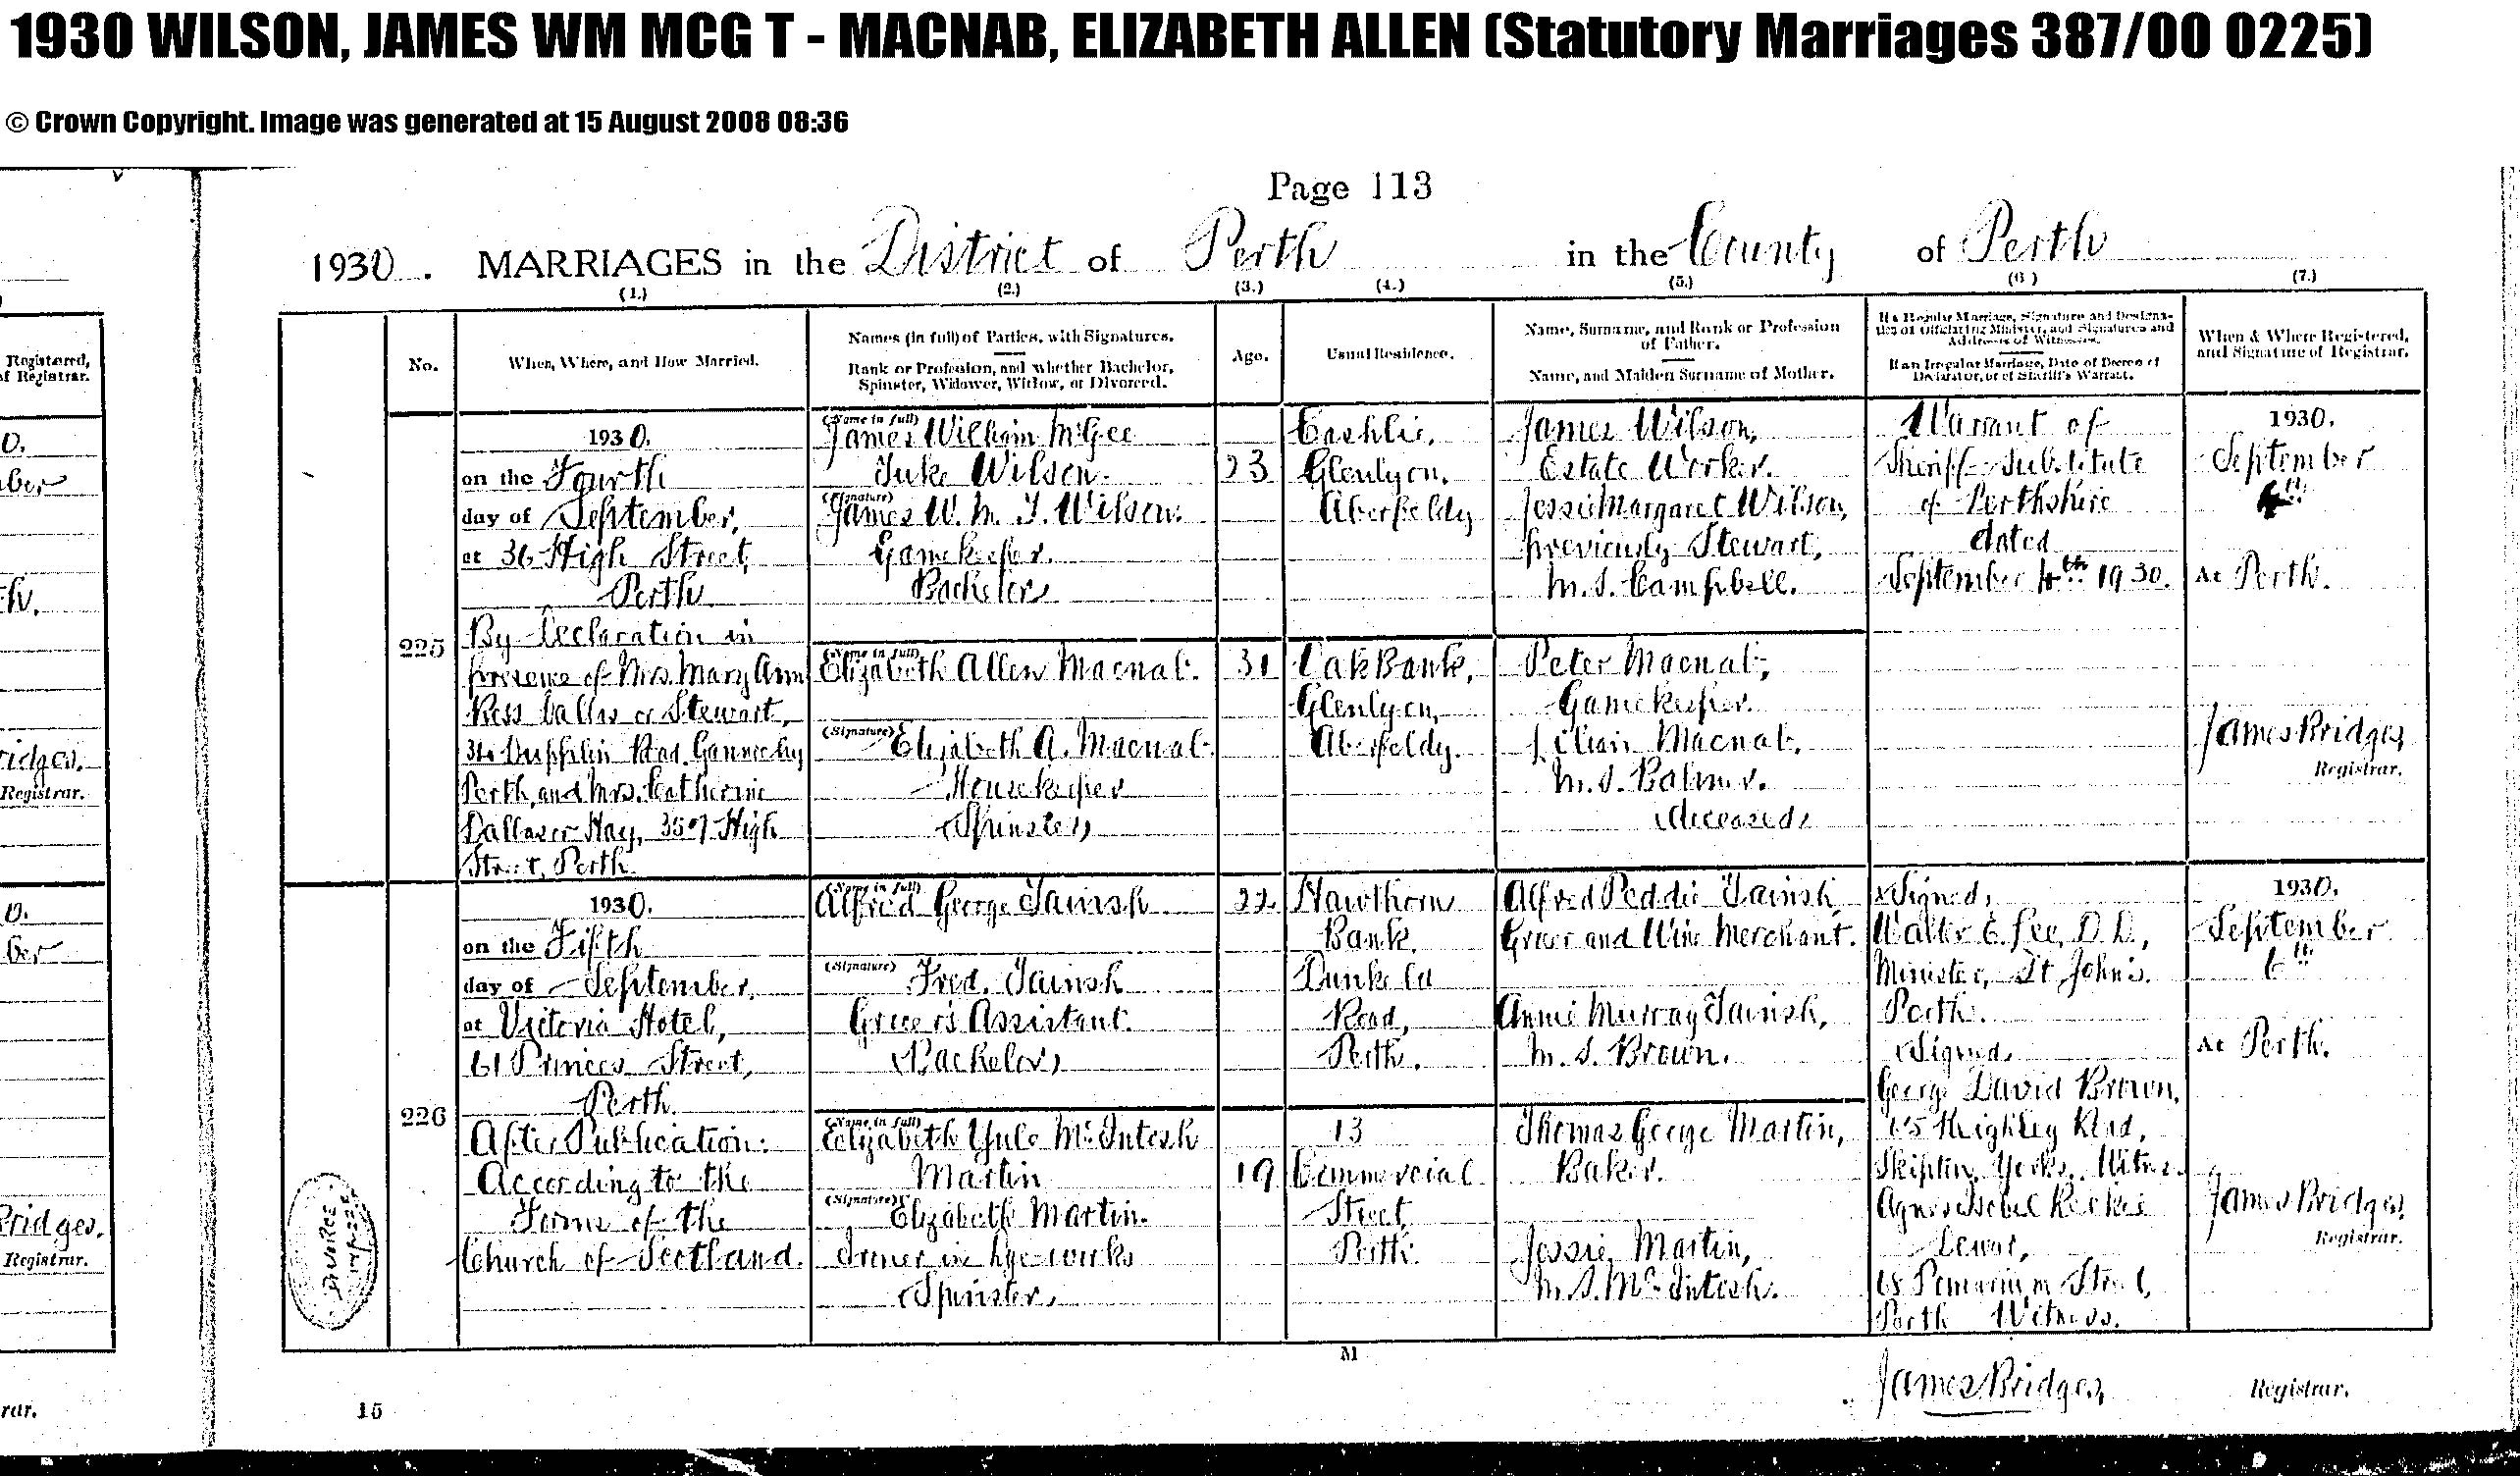 1930 WILSON, JAMES WM MCG T - MACNAB, ELIZABETH ALLEN (Statutory Marriages 387/00 0225)
© Crown Copyright. Image was generated at 15 August 2008 08:36
Page 113
1930. MARRIAGES in the District of Perth in the County of Perth
(1.) (2.) (3.) (4.) (5.) (6.) (7.)
No.
When, Where, and How Married.
Names (in full) of Parties, with Signatures.
Rank or Profession, and whether Bachelor,
Spinster, Widower, Widow, or Divorced.
Age.
Usual Residence.
Name, Surname, and Rank or Profession
of Father.
Name, and Maiden Surname of Mother.
If a Regular Marriage, Signature and Designa-
tion of Officiating Minister, and Signatures and
Addresses of Witnesses.
If an Irregular Marriage, Date of Decree of
Declarator, or of Sheriff's Warrant.
When & Where Registered,
and Signature of Registrar.
225
1930.
on the Fourth
day of September,
at 36 High Street,
Perth
By Declaration in
presence of Mrs. Mary Ann
Ross Dallas or Stewart,
Road, Gannochy
Perth, and Mrs. Catherine
Dallas or Hay, High
Street, Perth.
(Name in full)
James William McGee
Tuke Wilson.
(Signature)
James W. M. T. Wilson.
Gamekeeper
Bachelor
23
Cashlie,
Glenlyon,
Aberfeldy
James Wilson,
Estate Worker.
Jessie Margaret Wilson,
previously Stewart,
M.S. Campbell.
Warrant of
Sheriff-Substitute
of Perthshire
dated
September 4th 1930.
1930.
September
4th
At Perth.
James Bridges,
Registrar.
(Name in full)
Elizabeth Allen Macnab.
(Signature)
Elizabeth A. Macnab.
Housekeeper
(Spinster)
31
Oak Bank,
Glenlyon,
Aberfeldy.
Peter Macnab,
Gamekeeper.
Lilian Macnab,
M.S. Balmer.
(deceased)
226
1930.
on the Fifth
day of September,
at Victoria Hotel,
61 Princes Street,
Perth.
After Publication:
According to the
Forms of the
Church of Scotland.
(Name in full)
Alfred George Tainsh
(Signature)
Fred. Tainsh
Grocer's Assistant.
(Bachelor)
22
Hawthorn
Bank,
Dunkeld
Road,
Perth.
Alfred Peddie Tainsh,
Grocer and Wine Merchant.
Annie Murray Tainsh,
M.S. Brown.
(Signed)
Walter E. Lee, D.D.,
Minister, St John's.
Perth.
(Signed)
George David Brown,
Keighley Road,
Skipton, Yorks. Witness.
Agnes Isobel
65 Pomarium Street,
Perth Witness.
1930.
September
6th
At Perth.
James Bridges,
Registrar.
(Name in full)
Elizabeth Yule McIntosh
Martin
(Signature)
Elizabeth Martin.
Ironer in Dye-works
(Spinster)
19
13
Commercial
Street,
Perth.
Thomas George Martin,
Baker.
Jessie Martin,
M.S. McIntosh.
DIVORCE
M
James Bridges,
Registrar.
15
Registered,
of Registrar.
Registrar.